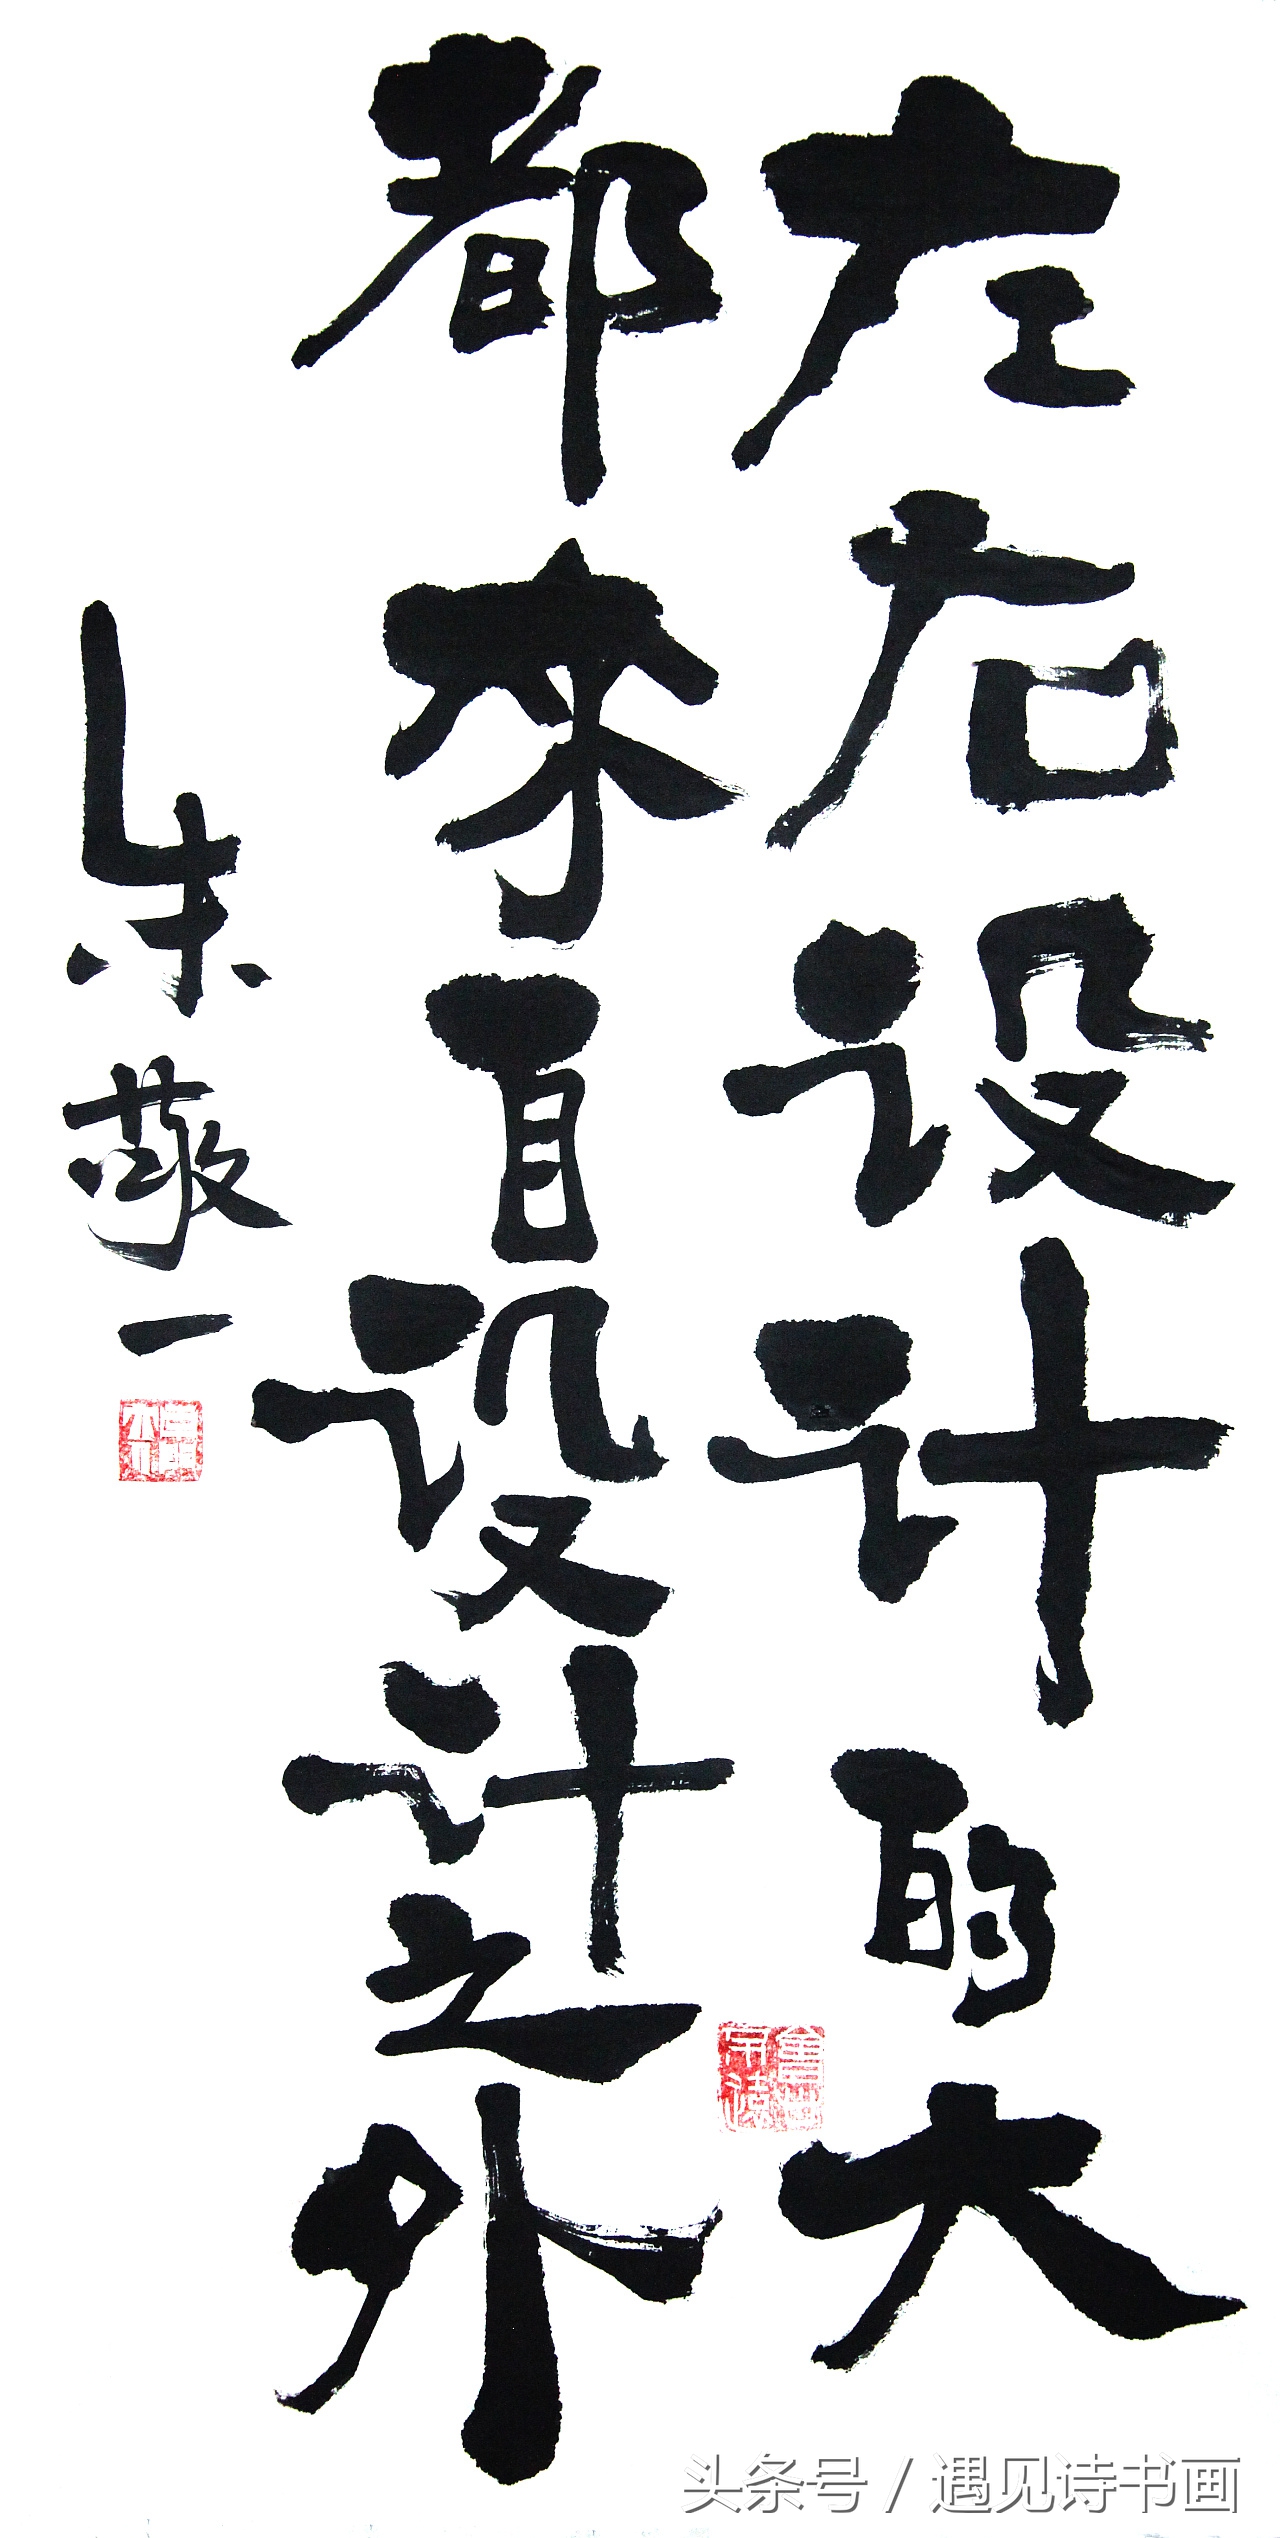 左右设计的大
都来自设计之外
朱敬一
头条号 / 遇见诗书画